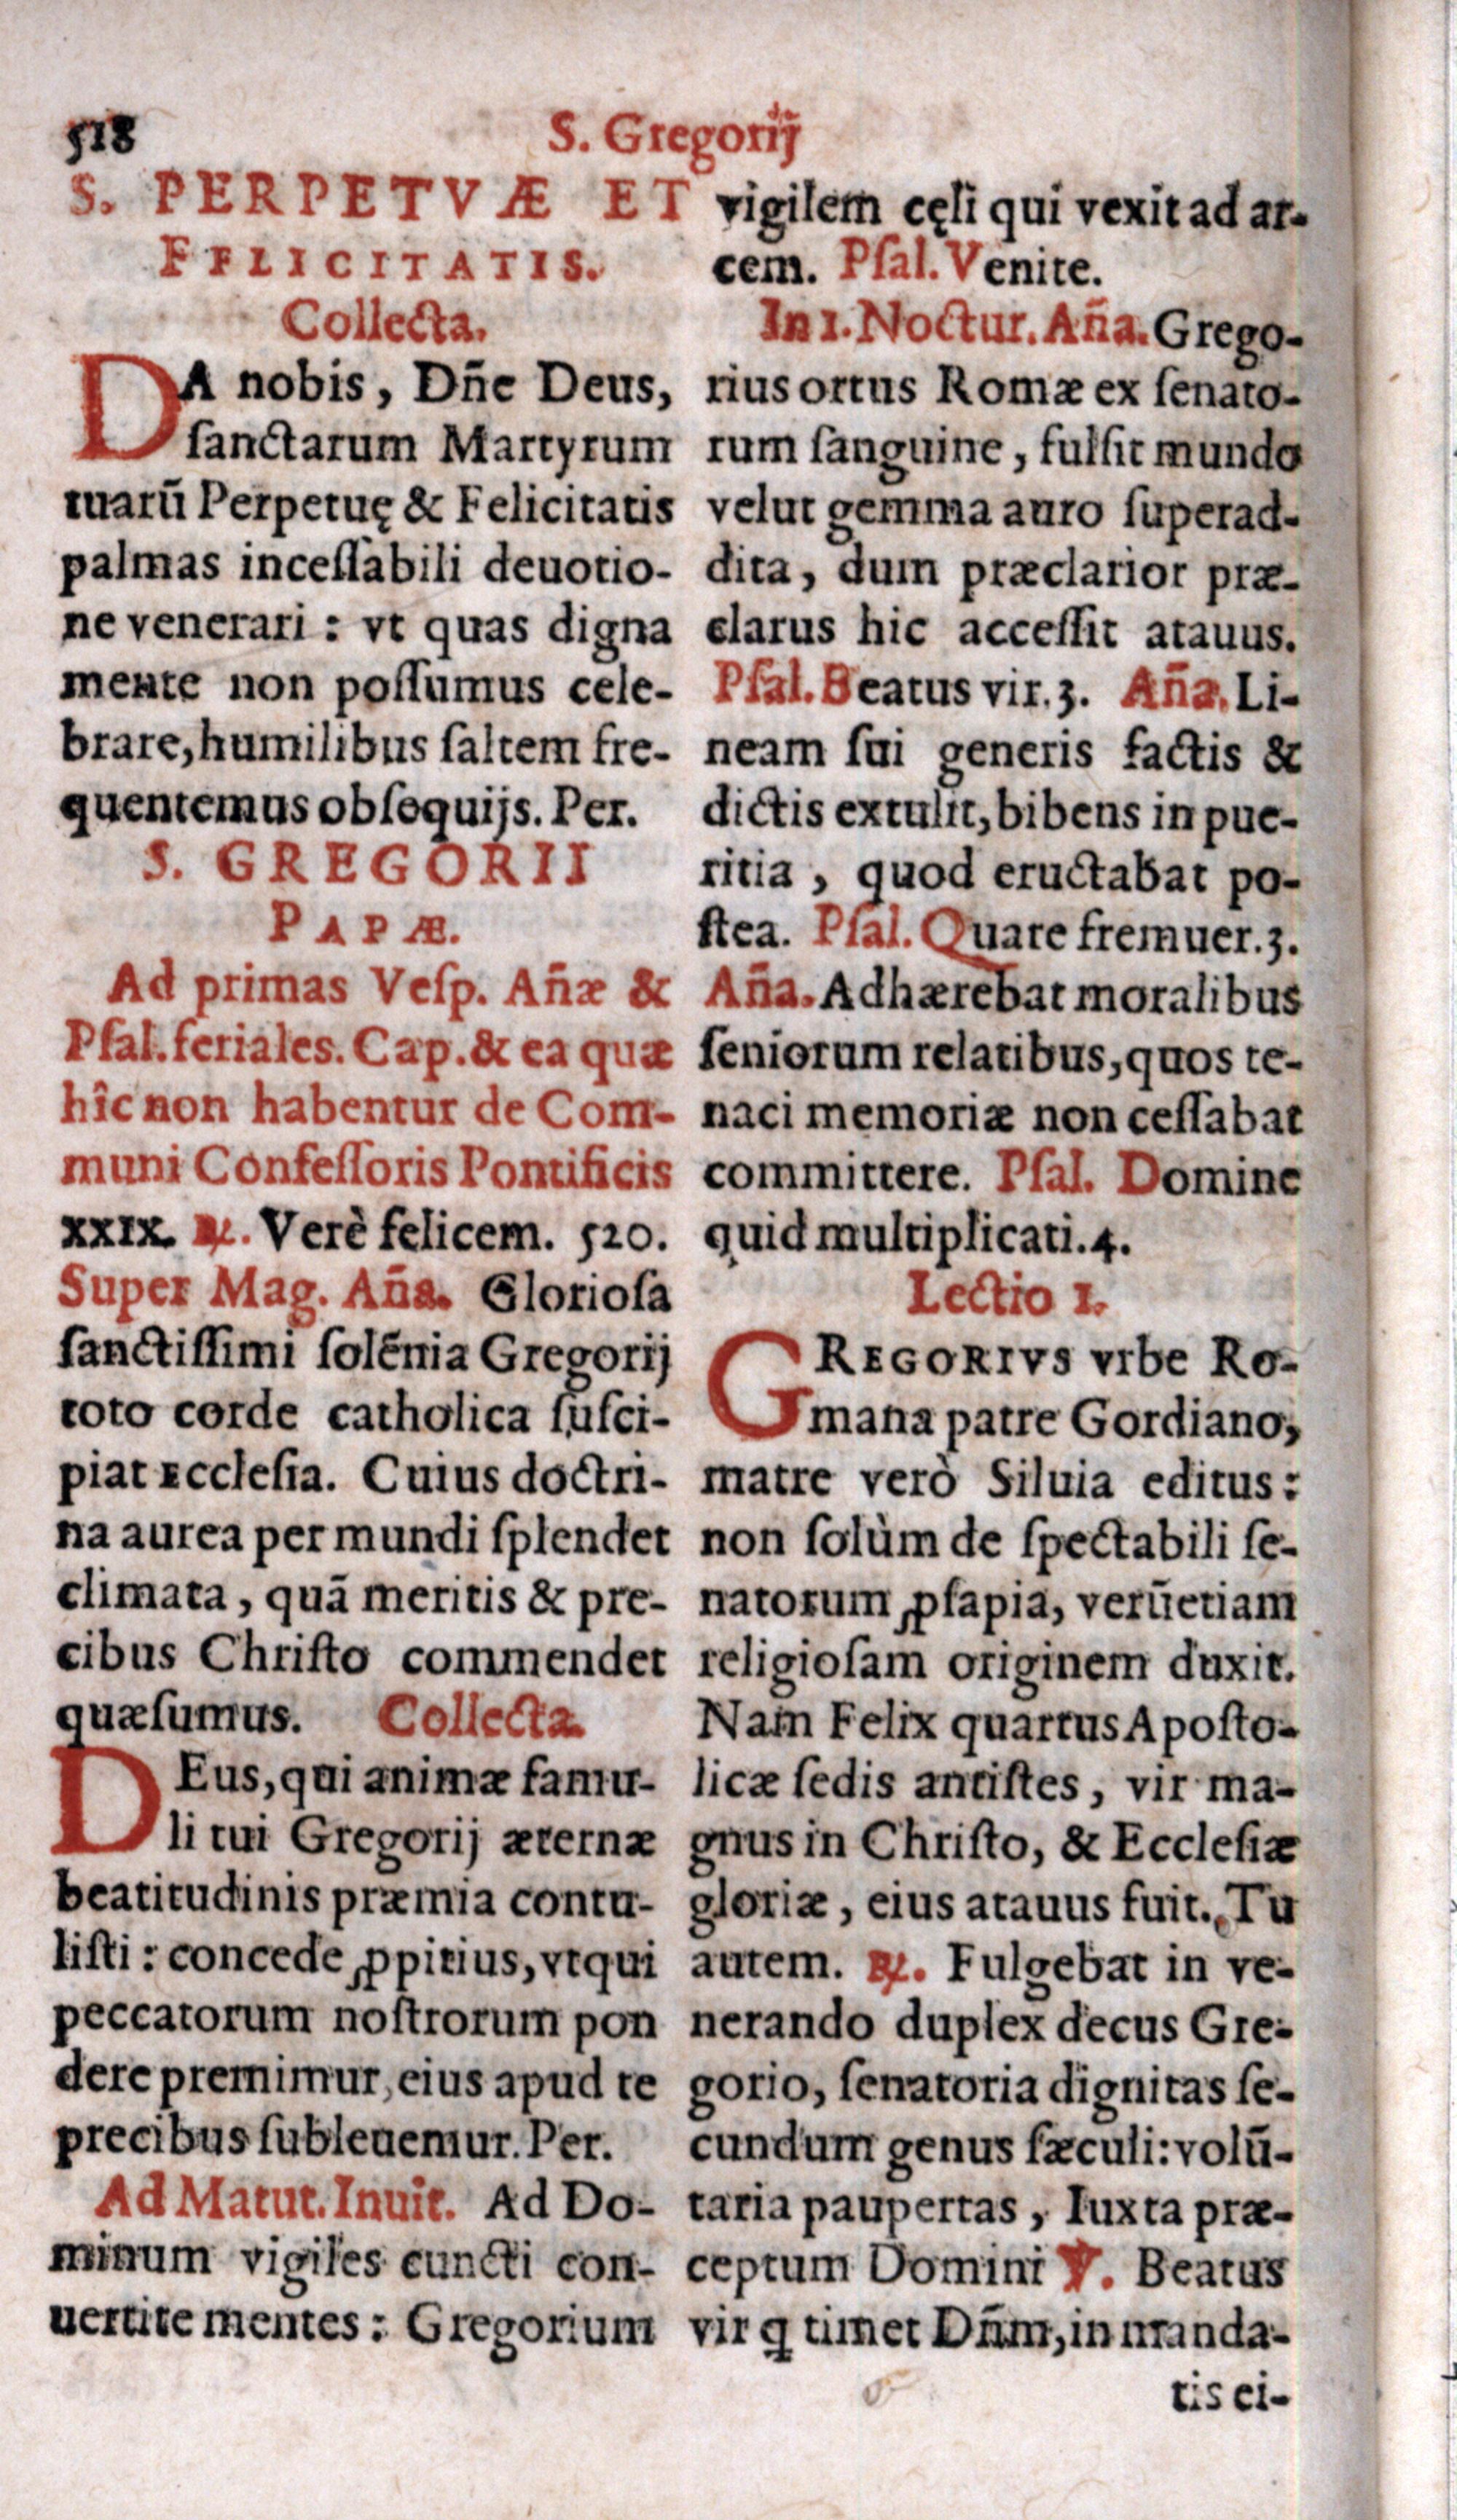 518
S. Gregorij
S. PERPETVÆ ET
FELICITATIS.
Collecta.
DA nobis, Dñe Deus,
ſanctarum Martyrum
tuarū Perpetuę & Felicitatis
palmas inceſſabili deuotio-
ne venerari : vt quas digna
mente non poſſumus cele-
brare, humilibus ſaltem fre-
quentemus obſequijs. Per.
S. GREGORII
PAPÆ.
Ad primas Veſp. Añæ &
Pſal. feriales. Cap. & ea quæ
hîc non habentur de Com-
muni Confeſſoris Pontificis
XXIX. ℟. Verè felicem. 520.
Super Mag. Aña. Glorioſa
ſanctiſſimi ſolēnia Gregorij
toto corde catholica ſuſci-
piat Eccleſia. Cuius doctri-
na aurea per mundi ſplendet
climata, quā meritis & pre-
cibus Chriſto commendet
quæſumus. Collecta.
DEus, qui animæ famu-
li tui Gregorij æternæ
beatitudinis præmia contu-
liſti : concede ꝓpitius, vt qui
peccatorum noſtrorum pon
dere premimur, eius apud te
precibus ſubleuemur. Per.
Ad Matut. Inuit. Ad Do-
minum vigiles cuncti con-
uertite mentes : Gregorium
vigilem cęli qui vexit ad ar-
cem. Pſal. Venite.
In 1. Noctur. Aña. Grego-
rius ortus Romæ ex ſenato-
rum ſanguine, fulſit mundo
velut gemma auro ſuperad-
dita, dum præclarior præ-
clarus hic acceſſit atauus.
Pſal. Beatus vir. 3. Aña. Li-
neam ſui generis factis &
dictis extulit, bibens in pue-
ritia, quod eructabat po-
ſtea. Pſal. Quare fremuer. 3.
Aña. Adhærebat moralibus
ſeniorum relatibus, quos te-
naci memoriæ non ceſſabat
committere. Pſal. Domine
quid multiplicati. 4.
Lectio 1.
GREGORIVS vrbe Ro-
mana patre Gordiano,
matre verò Siluia editus :
non ſolùm de ſpectabili ſe-
natorum ꝓſapia, verūetiam
religioſam originem duxit.
Nam Felix quartus Apoſto-
licæ ſedis antiſtes, vir ma-
gnus in Chriſto, & Eccleſiæ
gloriæ, eius atauus fuit. Tu
autem. ℟. Fulgebat in ve-
nerando duplex decus Gre-
gorio, ſenatoria dignitas ſe-
cundum genus ſæculi : volū-
taria paupertas, Iuxta præ-
ceptum Domini ℣. Beatus
vir ꝗ timet Dñm, in manda-
tis ei-